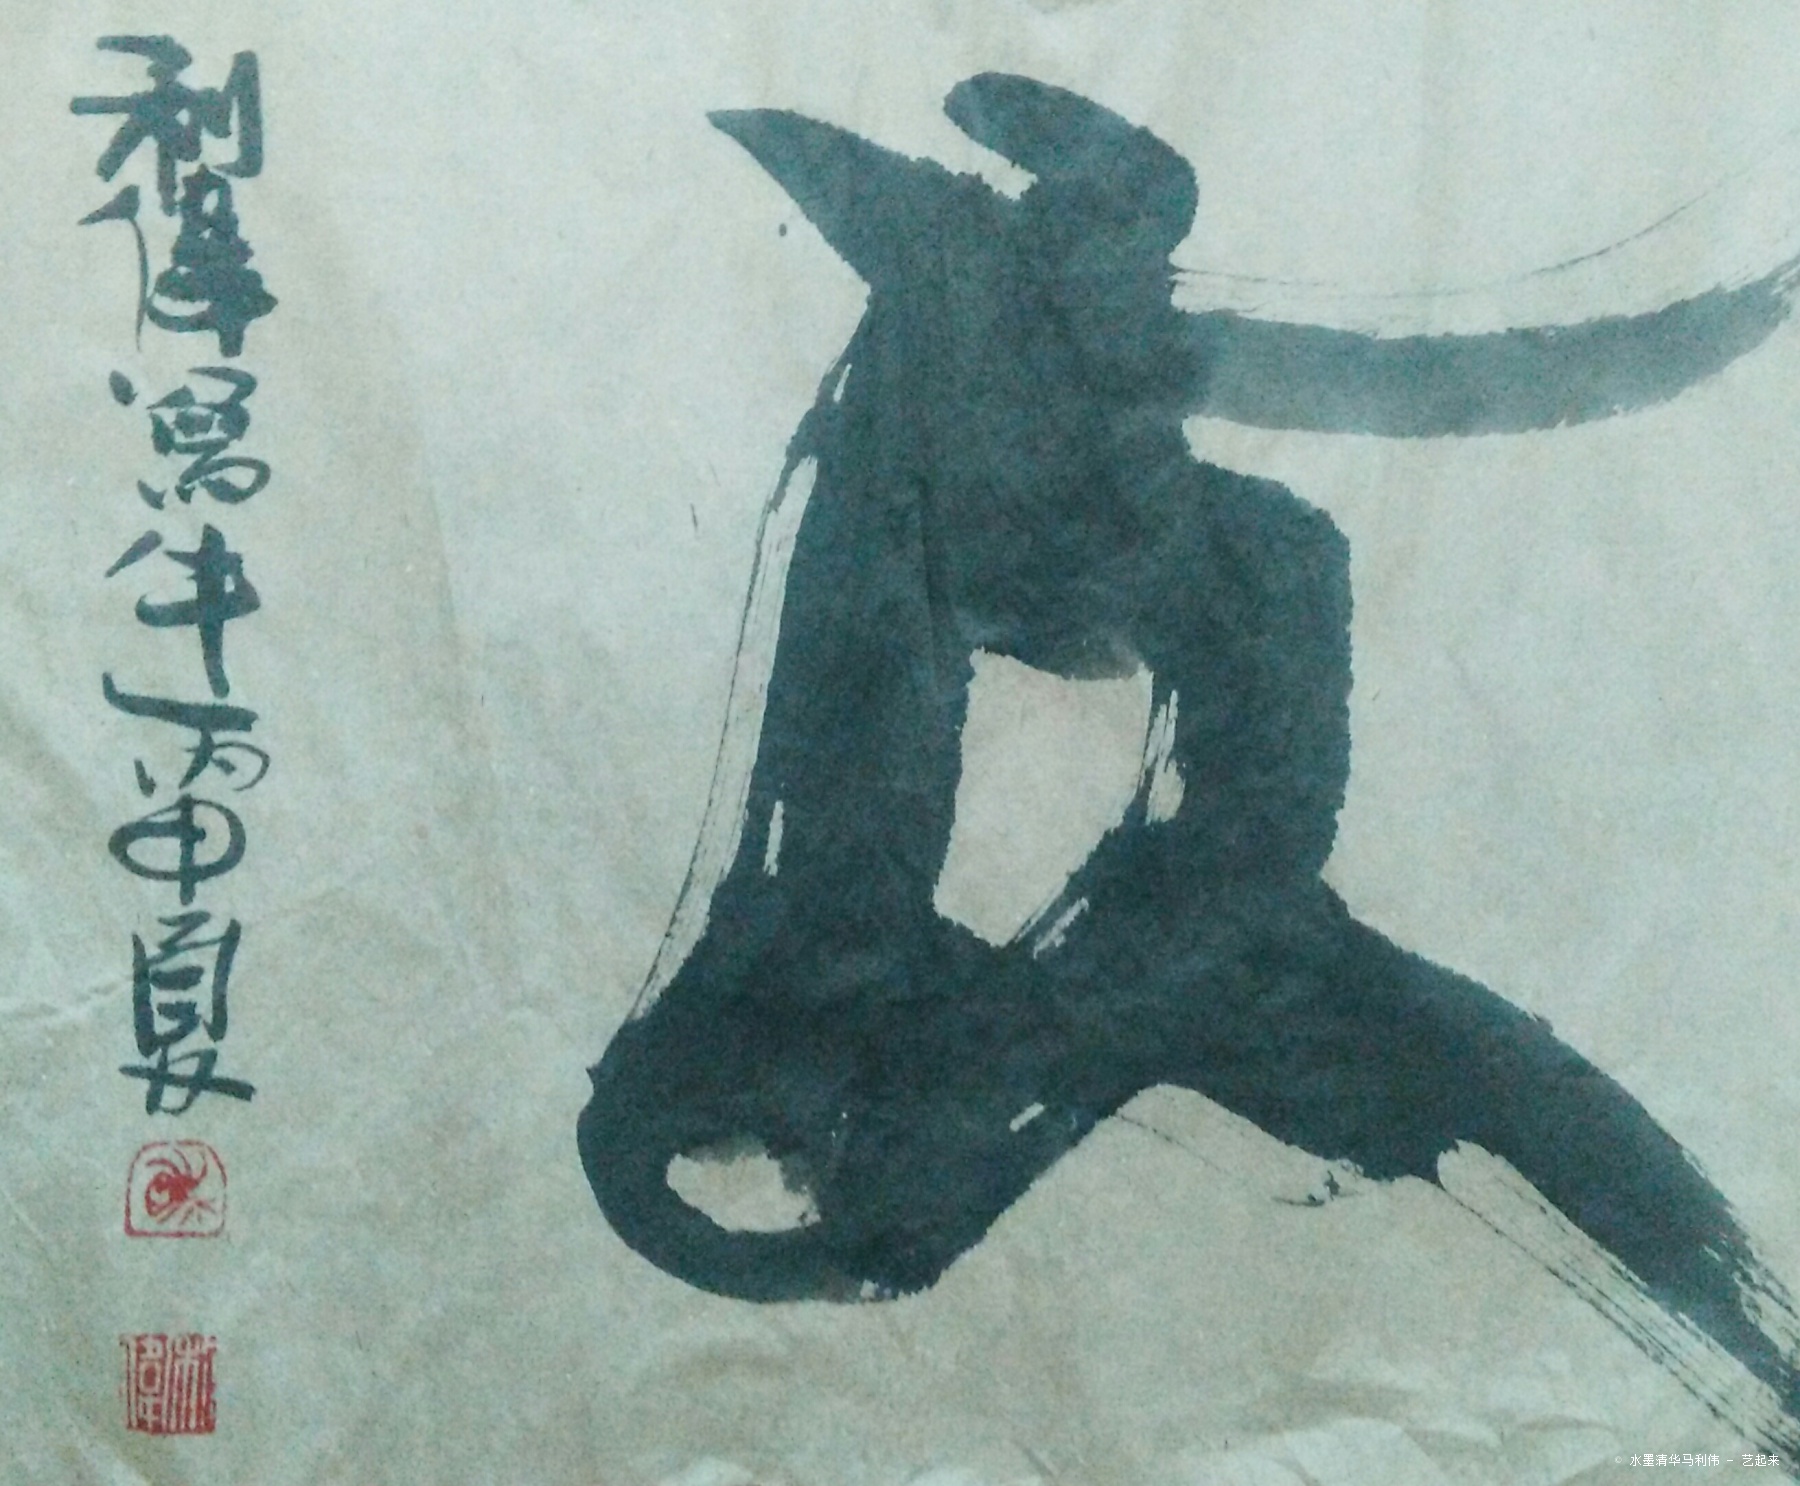 利偉寫牛丙申夏
利偉
© 水墨清华马利伟 - 艺起来